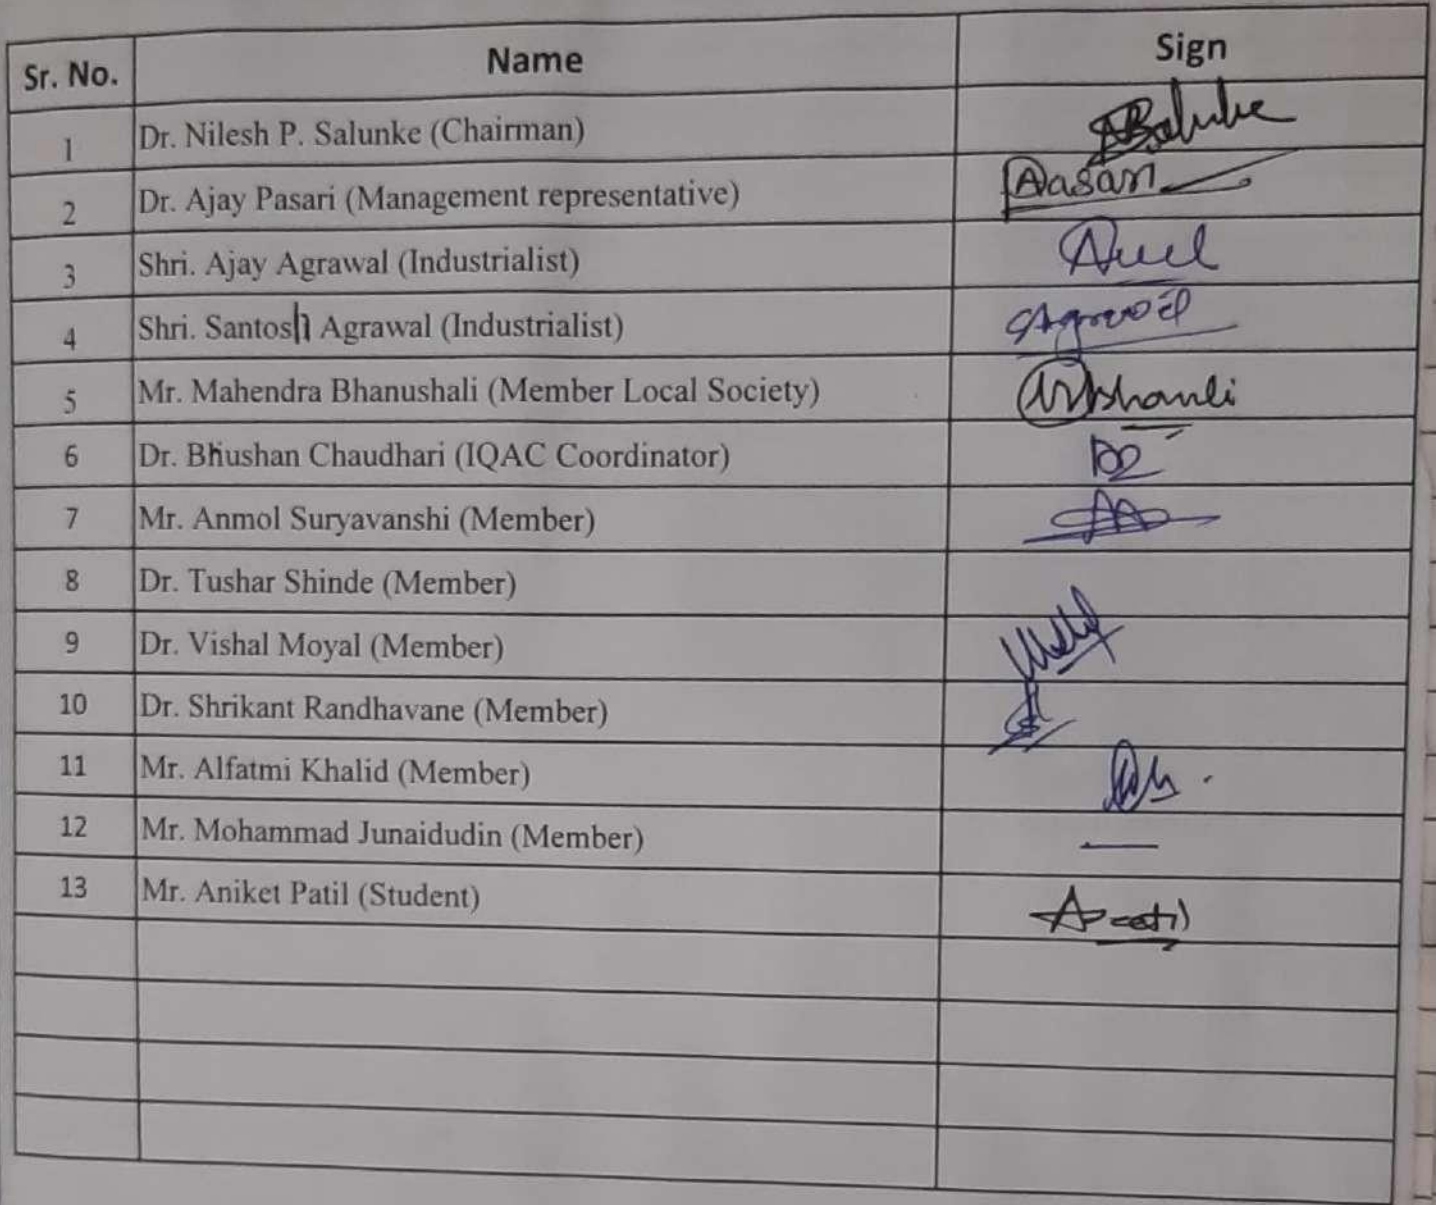 Sr. No. Name Sign
1 Dr. Nilesh P. Salunke (Chairman) Salunke
2 Dr. Ajay Pasari (Management representative) Pasari
3 Shri. Ajay Agrawal (Industrialist)
4 Shri. Santosh Agrawal (Industrialist) Agrawal
5 Mr. Mahendra Bhanushali (Member Local Society)
6 Dr. Bhushan Chaudhari (IQAC Coordinator)
7 Mr. Anmol Suryavanshi (Member)
8 Dr. Tushar Shinde (Member)
9 Dr. Vishal Moyal (Member)
10 Dr. Shrikant Randhavane (Member)
11 Mr. Alfatmi Khalid (Member)
12 Mr. Mohammad Junaidudin (Member) —
13 Mr. Aniket Patil (Student) APatil